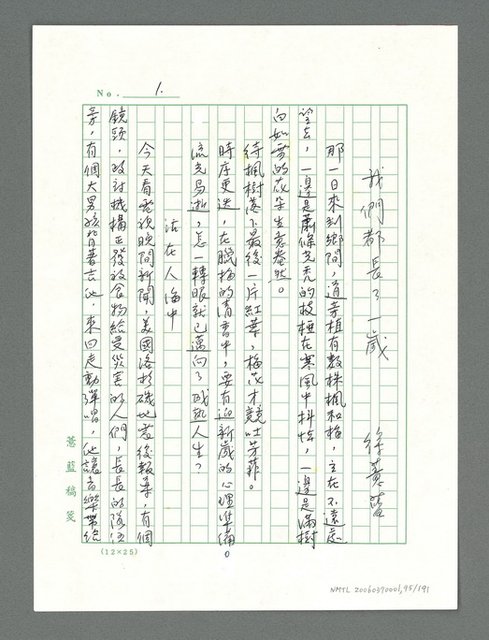 No. 1.
我們都長了一歲
徐薏藍
那一日來到鄉間,道旁植有數株楓和梅,立在不遠處
望去,一邊是蕭條光禿的枝椏在寒風中抖怯,一邊是滿樹
白如雪的花朵生意盎然。
待楓樹落下最後一片紅葉,梅花才競吐芳菲。
時序更迭,在臘梅的清香中,要有迎新歲的心理準備。
流光易逝,怎一轉眼就已邁向了成熟人生?
活在人海中
今天看電視晚間新聞,美國洛杉磯地震後報導,有個
鏡頭,救濟機構正發放食物給受災害的人們,長長的隊伍
旁,有個大男孩背著吉他,來回走動彈唱,他讓音樂帶給
薏藍稿箋
(12×25)
NMTL 20060390001,95/191